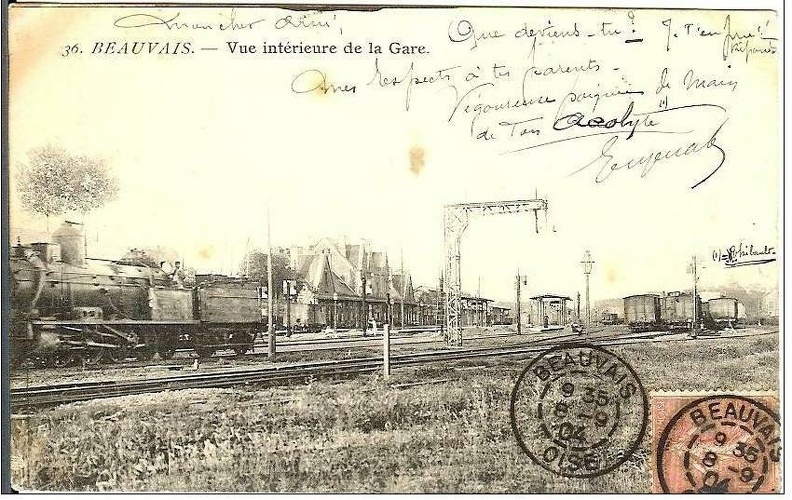 Mon cher ami,
Que deviens-tu ? J. T'en prie
réponds
36. BEAUVAIS. — Vue intérieure de la Gare.
Mes respects à tes parents -
Vigoureuse poignée de main
de Ton Acolyte (1)
(1)
BEAUVAIS
9 35
8 - 9
04
OISE
BEAUVAIS
9 35
8 - 9
04